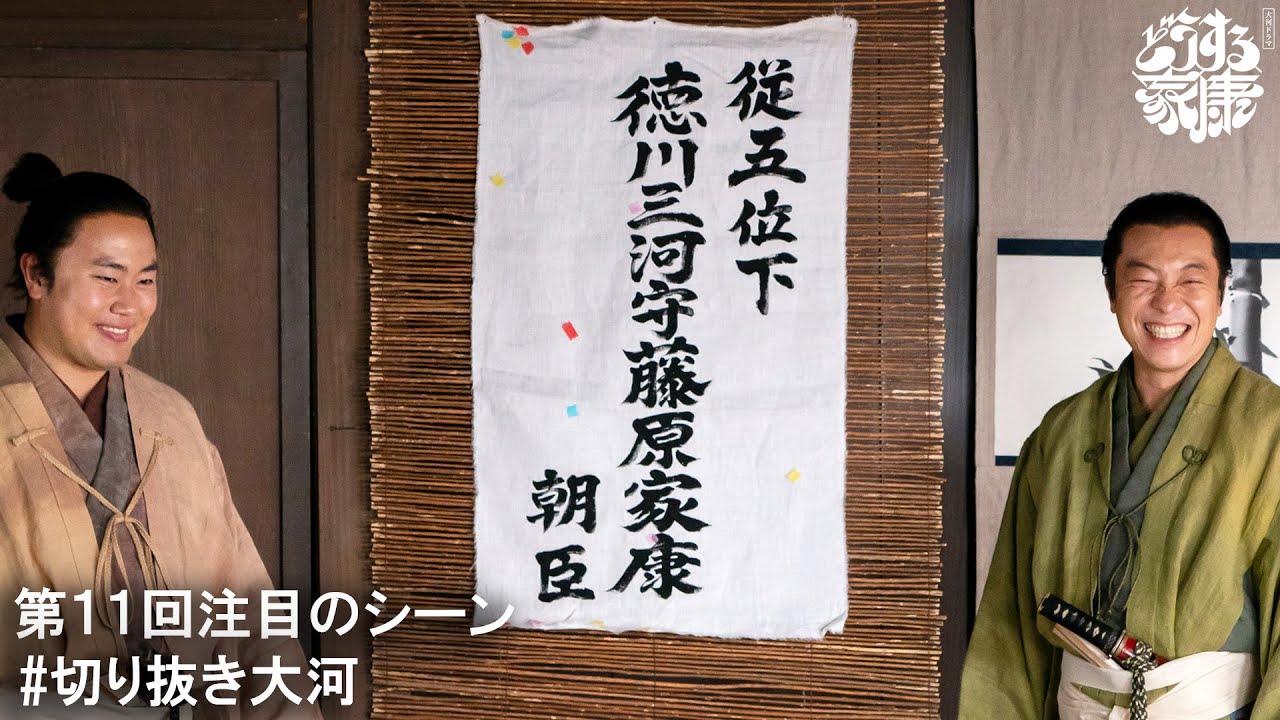 従五位下
徳川三河守藤原家康
朝臣
大河ドラマ
どうする
家康
第11回注目のシーン
#切り抜き大河